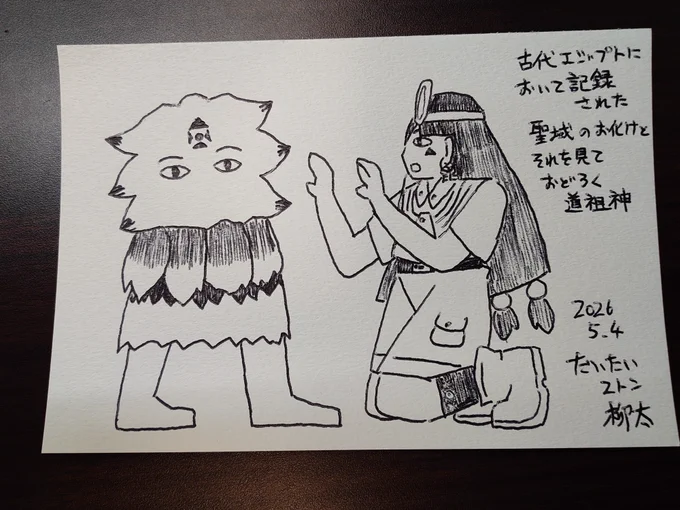 古代エジプトに
おいて記録
された
聖域のお化けと
それを見て
おどろく
道祖神
2026
5.4
だいたい
2トン
柳太